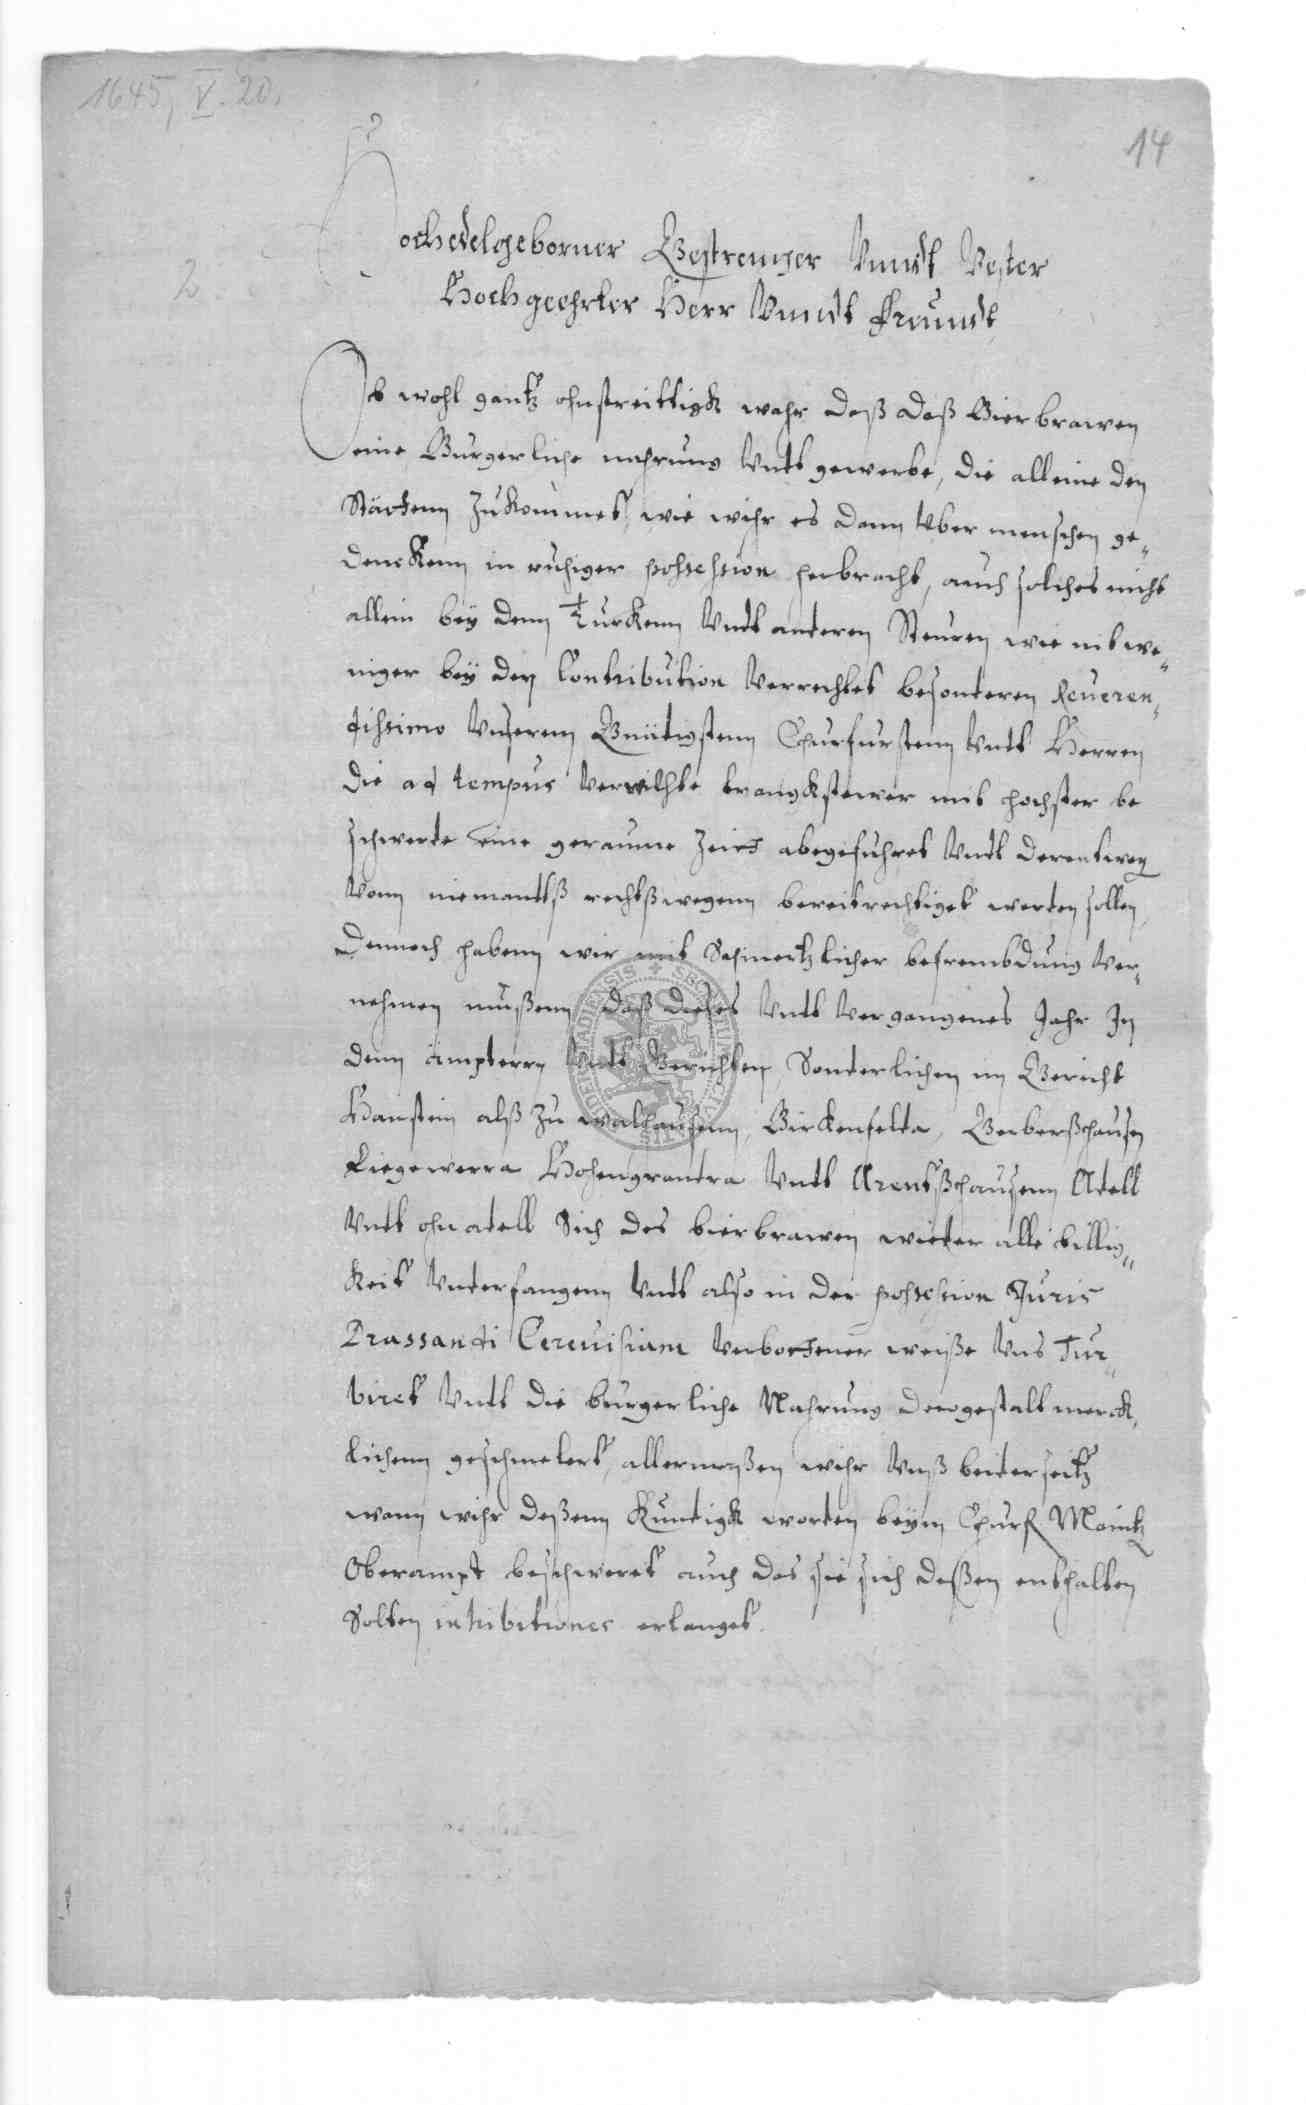 1645, V. 20.
14
2
Hochedelgeborner Gestrenger Vnndt Vester
Hochgeehrter Herr Vnndt Freundt
Ob wohl gantz ohnstreittigk wahr daß daß Bierbrawen
eine Burgerliche nahrung Vndt gewerbe, die alleine den
Städtenn zukommet, wie wihr es dann vber menschen ge„
denckenn in ruhiger possession herbracht, auch solches nicht
allein bey denn Turckenn Vndt anderen Steuren wie nit we„
niger bey der Contribution verrechtet besonderen Reueren„
dissimo Vnserem Gnädigstenn Churfurstenn Vndt Herren
die ad tempus verwilligte tranckstewer mit hochster be
schwerde eine geraume Zeitt abgefuhret Vndt derentwegen
Vonn niemandtß rechtßwegenn bereitrechtiget werden sollen,
Dennoch habenn wir mit Schmertzlicher befrembdung Ver„
nehmen mußenn daß dieses Vndt Vergangenes Jahr In
denn ämptern Vndt Gerichten, Sonderlichen im Gericht
Hanstein alß zu walhausenn, Birckenfelda, Gerberßhausen
Kiegewerra Hohengrandra Vndt Arentßhausenn Adell
Vndt ohn adell Sich des bierbrawen wieder alle billig„
keit Vnterfangenn Vndt also in der possession Juris
Brassandi Cereuisiam Verbottener weiße Vns Tur„
biret Vndt die burgerliche Nahrung dergestalt merck„
lichenn geschmelert, allermaßen wihr Vnß beiderseitz
wann wihr deßenn Kundigk worden beym Churf Maintz
Oberampt beschweret auch das sie sich deßen enthalten
Solten inhibitiones erlanget.
SECRETUM CIVITATIS